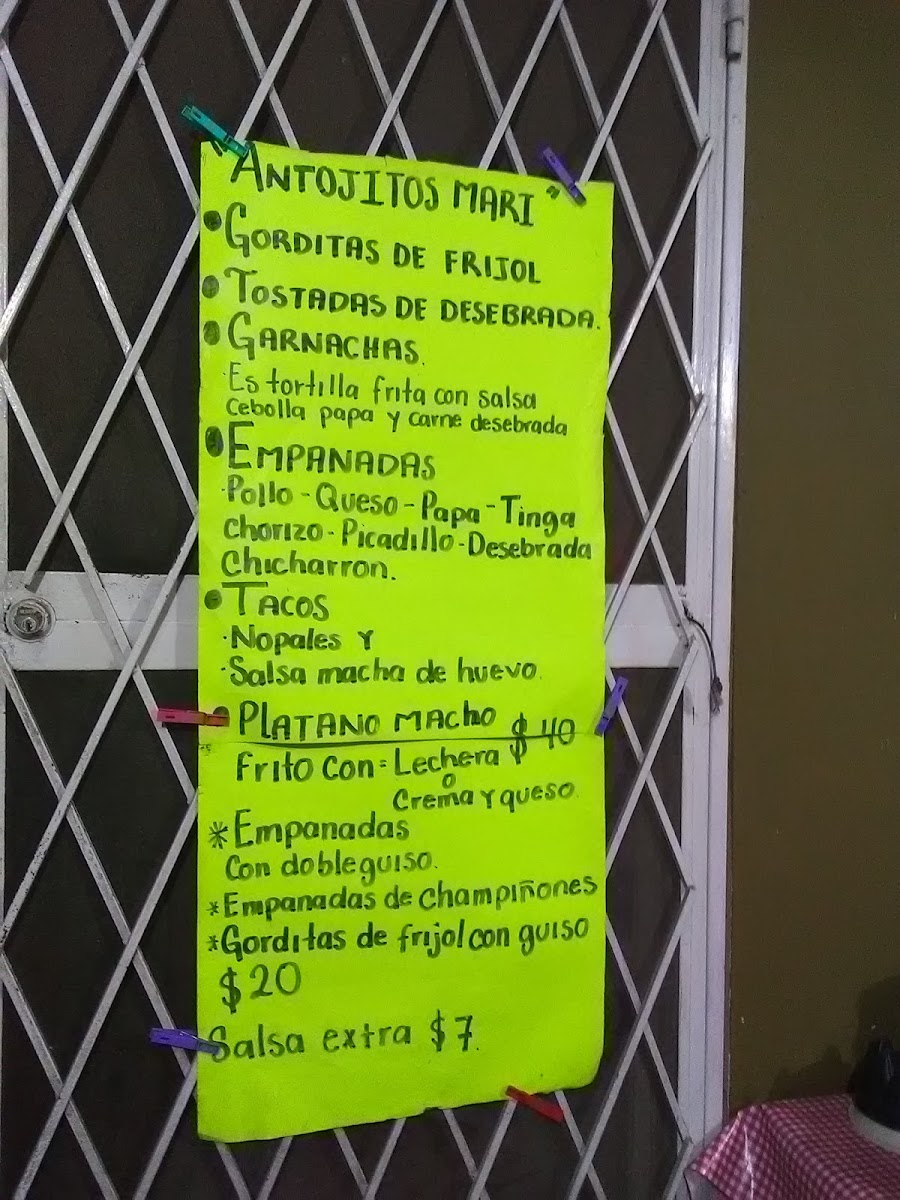 "ANTOJITOS MARI"
• GORDITAS DE FRIJOL
• TOSTADAS DE DESEBRADA.
• GARNACHAS.
·Es tortilla frita con salsa
Cebolla papa y carne desebrada
• EMPANADAS
·Pollo - Queso - Papa - Tinga
Chorizo - Picadillo - Desebrada
Chicharron.
• TACOS
·Nopales Y
·Salsa macha de huevo.
• PLATANO MACHO $40
Frito con = Lechera
o
Crema y queso.
*Empanadas
Con doble guiso.
*Empanadas de Champiñones
*Gorditas de frijol con guiso
$20
Salsa extra $7.